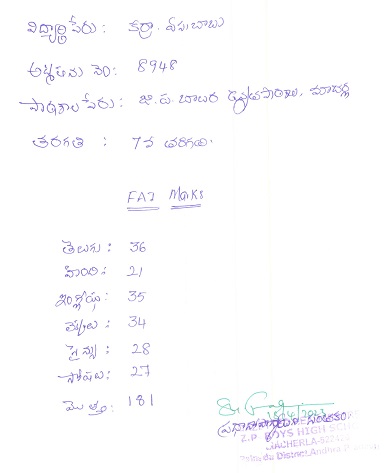 విద్యార్థి పేరు: కర్రా. ఏసుబాబు
అడ్మిషను నెం: 8948
పాఠశాల పేరు: జి.ప. బాలుర ఉన్నత పాఠశాల, మాచర్ల
తరగతి : 7వ తరగతి.
FA2 Marks
తెలుగు : 36
హింది : 21
ఇంగ్లీషు : 35
లెక్కలు : 34
సైన్సు : 28
సోషలు : 27
మొత్తం : 181
18/4/2023
ప్రధానోపాధ్యాయుని సంతకం
Z.P BOYS HIGH SCHOOL
MACHERLA-522426
District, Andhra